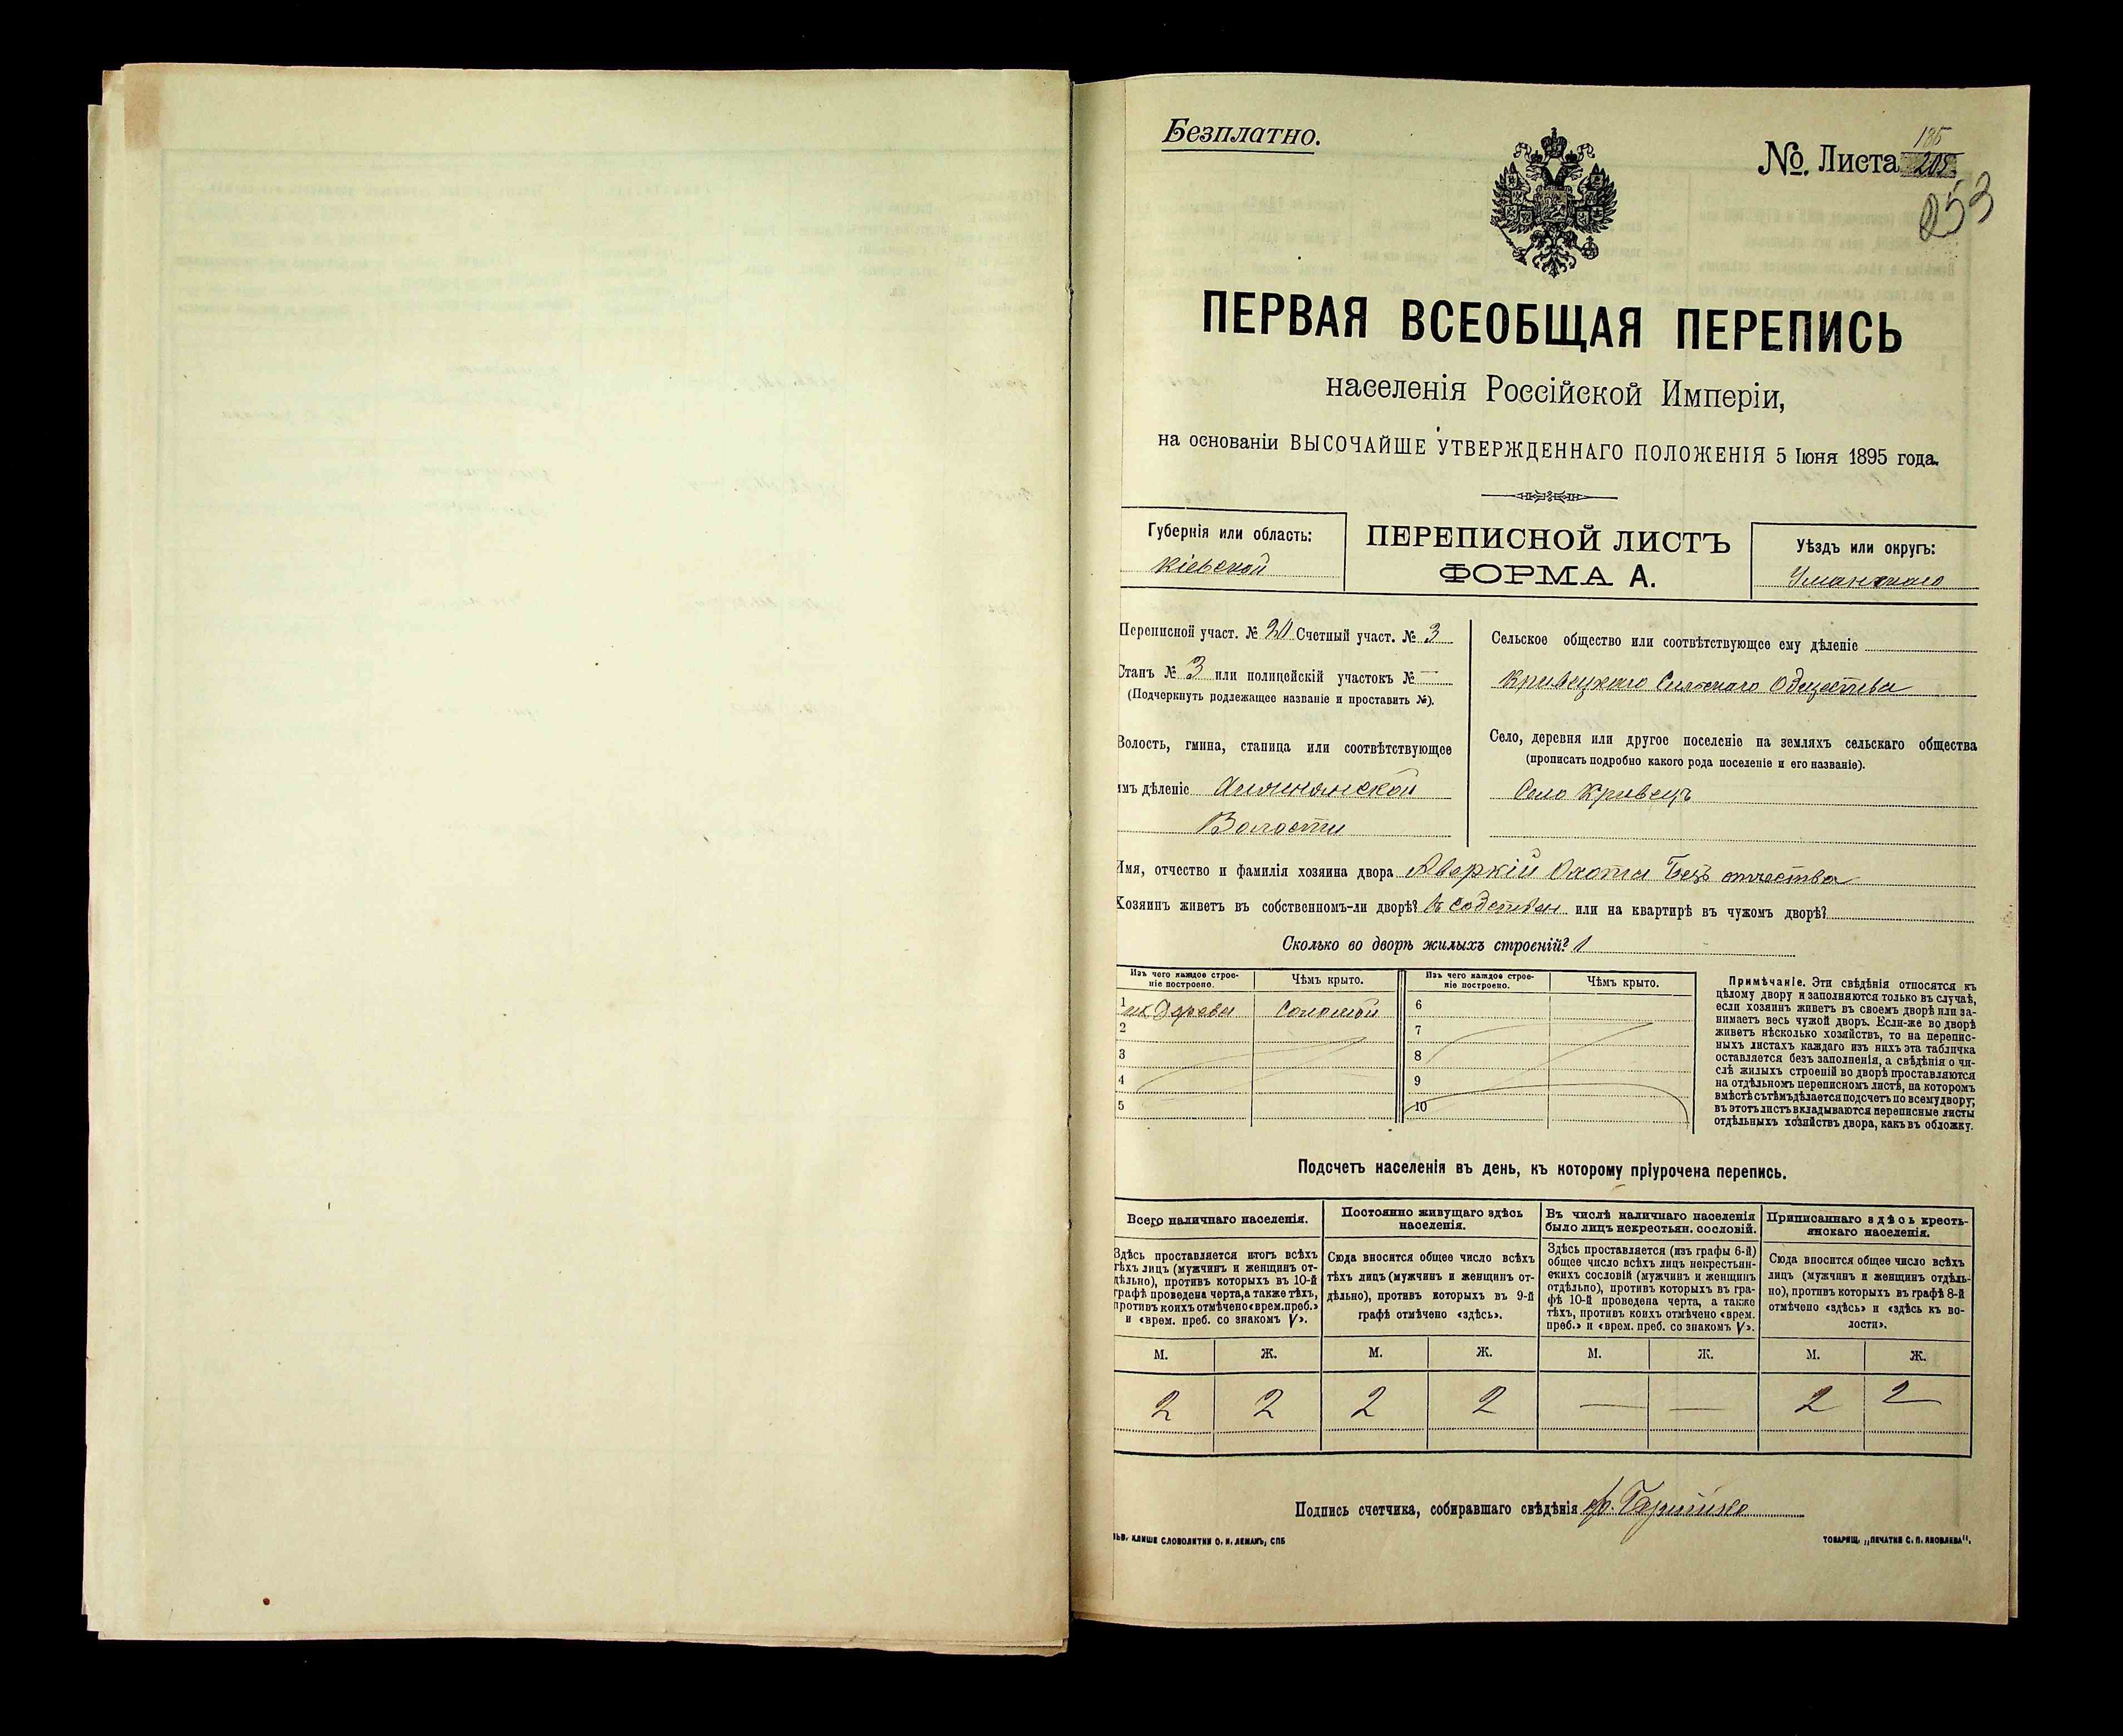 Безплатно.
№. Листа 205
185
253
ПЕРВАЯ ВСЕОБЩАЯ ПЕРЕПИСЬ
населенія Россійской Имперіи,
на основаніи ВЫСОЧАЙШЕ УТВЕРЖДЕННАГО ПОЛОЖЕНІЯ 5 Іюня 1895 года.
Губернія или область:
Кіевской
ПЕРЕПИСНОЙ ЛИСТЪ
ФОРМА А.
Уѣздъ или округъ:
Уманскаго
Переписной участ. № 20 Счетный участ. № 3
Станъ № 3 или полицейскій участокъ № —
(Подчеркнуть подлежащее названіе и проставить №).
Волость, гмина, станица или соотвѣтствующее
имъ дѣленіе
Волости
Сельское общество или соотвѣтствующее ему дѣленіе
Кривецкаго Сельскаго Общества
Село, деревня или другое поселеніе на земляхъ сельскаго общества
(прописать подробно какого рода поселеніе и его названіе).
Село Кривецъ
Имя, отчество и фамилія хозяина двора Аверкій Охота Безъ отчества
Хозяинъ живетъ въ собственномъ-ли дворѣ? въ собствен или на квартирѣ въ чужомъ дворѣ?
Сколько во дворѣ жилыхъ строеній? 1
Изъ чего каждое строе-
ніе построено.
Чѣмъ крыто.
Изъ чего каждое строе-
ніе построено.
Чѣмъ крыто.
1 изъ Дерева Соломой
2
3
4
5
6
7
8
9
10
Примѣчаніе. Эти свѣдѣнія относятся къ
цѣлому двору и заполняются только въ случаѣ,
если хозяинъ живетъ въ своемъ дворѣ или за-
нимаетъ весь чужой дворъ. Если-же во дворѣ
живетъ нѣсколько хозяйствъ, то на перепис-
ныхъ листахъ каждаго изъ нихъ эта табличка
оставляется безъ заполненія, а свѣдѣнія о чи-
слѣ жилыхъ строеній во дворѣ проставляются
на отдѣльномъ переписномъ листѣ, на которомъ
вмѣстѣ съ тѣмъ дѣлается подсчетъ по всему двору;
въ этотъ листъ вкладываются переписные листы
отдѣльныхъ хозяйствъ двора, какъ въ обложку.
Подсчетъ населенія въ день, къ которому пріурочена перепись.
Всего наличнаго населенія.
Здѣсь проставляется итогъ всѣхъ
тѣхъ лицъ (мужчинъ и женщинъ от-
дѣльно), противъ которыхъ въ 10-й
графѣ проведена черта, а также тѣхъ,
противъ коихъ отмѣчено «врем. преб.»
и «врем. преб. со знакомъ V».
Постоянно живущаго здѣсь
населенія.
Сюда вносится общее число всѣхъ
тѣхъ лицъ (мужчинъ и женщинъ от-
дѣльно), противъ которыхъ въ 9-й
графѣ отмѣчено «здѣсь».
Въ числѣ наличнаго населенія
было лицъ некрестьян. сословій.
Здѣсь проставляется (изъ графы 6-й)
общее число всѣхъ лицъ некрестьян-
скихъ сословій (мужчинъ и женщинъ
отдѣльно), противъ которыхъ въ гра-
фѣ 10-й проведена черта, а также
тѣхъ, противъ коихъ отмѣчено «врем.
преб.» и «врем. преб. со знакомъ V».
Приписаннаго здѣсь кресть-
янскаго населенія.
Сюда вносится общее число всѣхъ
лицъ (мужчинъ и женщинъ отдѣль-
но), противъ которыхъ въ графѣ 8-й
отмѣчено «здѣсь» и «здѣсь къ во-
лости».
М. Ж. М. Ж. М. Ж. М. Ж.
2 2 2 2 — — 2 2
Подпись счетчика, собиравшаго свѣдѣнія
КЛИШЕ СЛОВОЛИТНИ О. И. ЛЕМАНЪ, СПБ
ТОВАРИЩ. „ПЕЧАТНЯ С. П. ЯКОВЛЕВА".